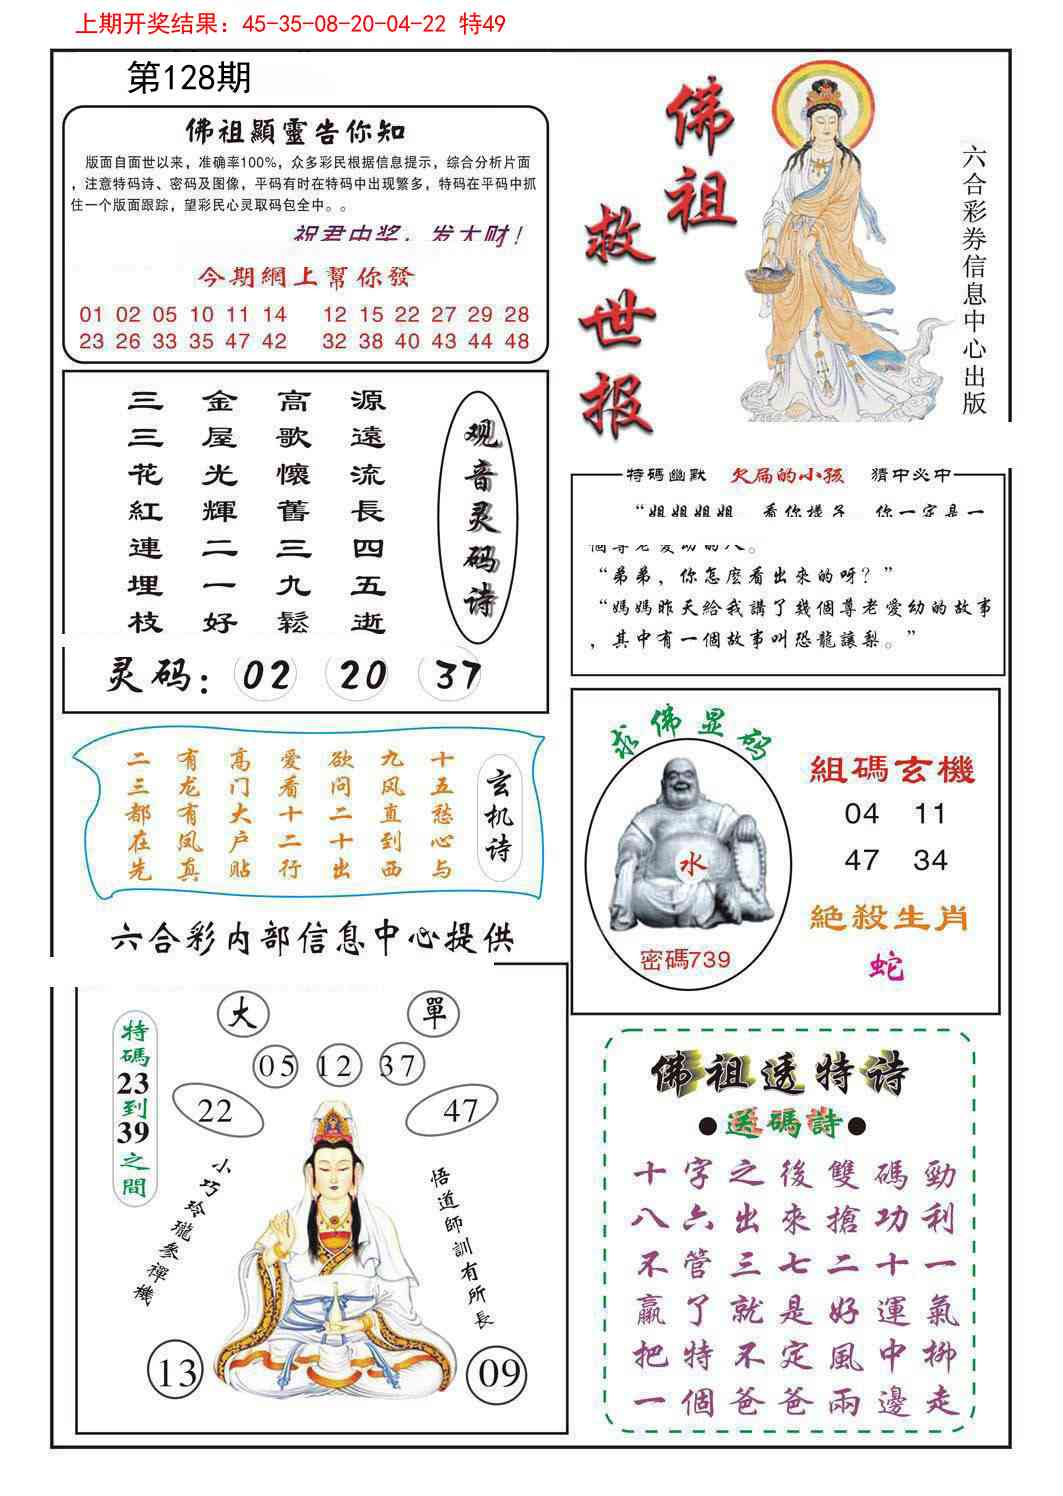 上期开奖结果：45-35-08-20-04-22 特49
第128期
佛祖顯靈告你知
版面自面世以来，准确率100%，众多彩民根据信息提示，综合分析片面
，注意特码诗、密码及图像，平码有时在特码中出现繁多，特码在平码中抓
住一个版面跟踪，望彩民心灵取码包全中。。
祝君中奖，发大财！
今期網上幫你發
01 02 05 10 11 14 12 15 22 27 29 28
23 26 33 35 47 42 32 38 40 43 44 48
佛祖
救世报
六合彩券信息中心出版
三 金 高 源
三 屋 歌 遠
花 光 懷 流
紅 輝 舊 長
連 二 三 四
埋 一 九 五
枝 好 鬆 逝
观音灵码诗
灵码：02 20 37
特碼幽默 欠扁的小孩 猜中必中
“姐姐姐姐，看你樣子，你一定是一
個尊老愛幼的人。
“弟弟，你怎麽看出來的呀？”
“媽媽昨天給我講了幾個尊老愛幼的故事
，其中有一個故事叫恐龍讓梨。”
二 有 高 爱 欲 九 十
三 龙 门 看 问 风 五
都 有 大 十 二 直 愁
在 凤 户 二 十 到 心
先 真 贴 行 出 西 与
玄机诗
六合彩内部信息中心提供
求佛显码
水
密碼739
組碼玄機
04 11
47 34
絕殺生肖
蛇
大 單
05 12 37
22 47
特碼23到39之間
小巧玲瓏參禪機
悟道師訓有所長
13 09
佛祖透特诗
●送碼詩●
十字之後雙碼勁
八六出來搶功利
不管三七二十一
贏了就是好運氣
把特不定風中拶
一個爸爸兩邊走